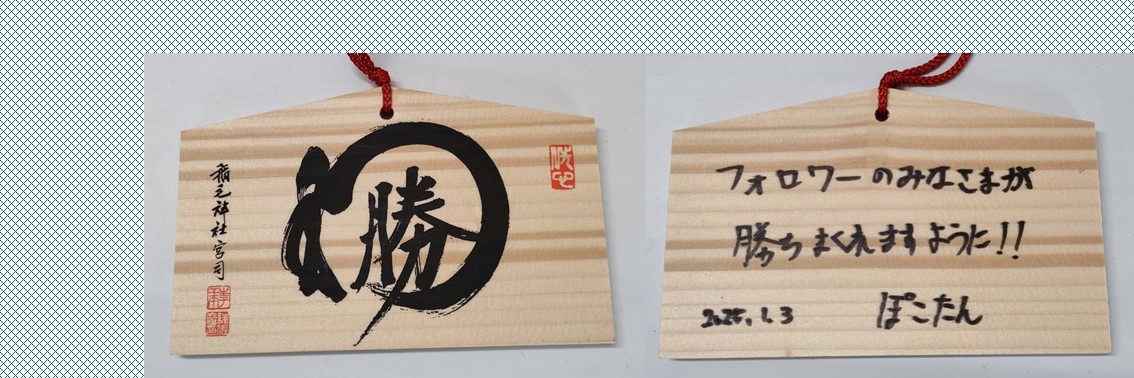 勝
稲毛神社宮司
洗心
フォロワーのみなさまが
勝ちまくれますように!!
2025.1.3 ぽこたん